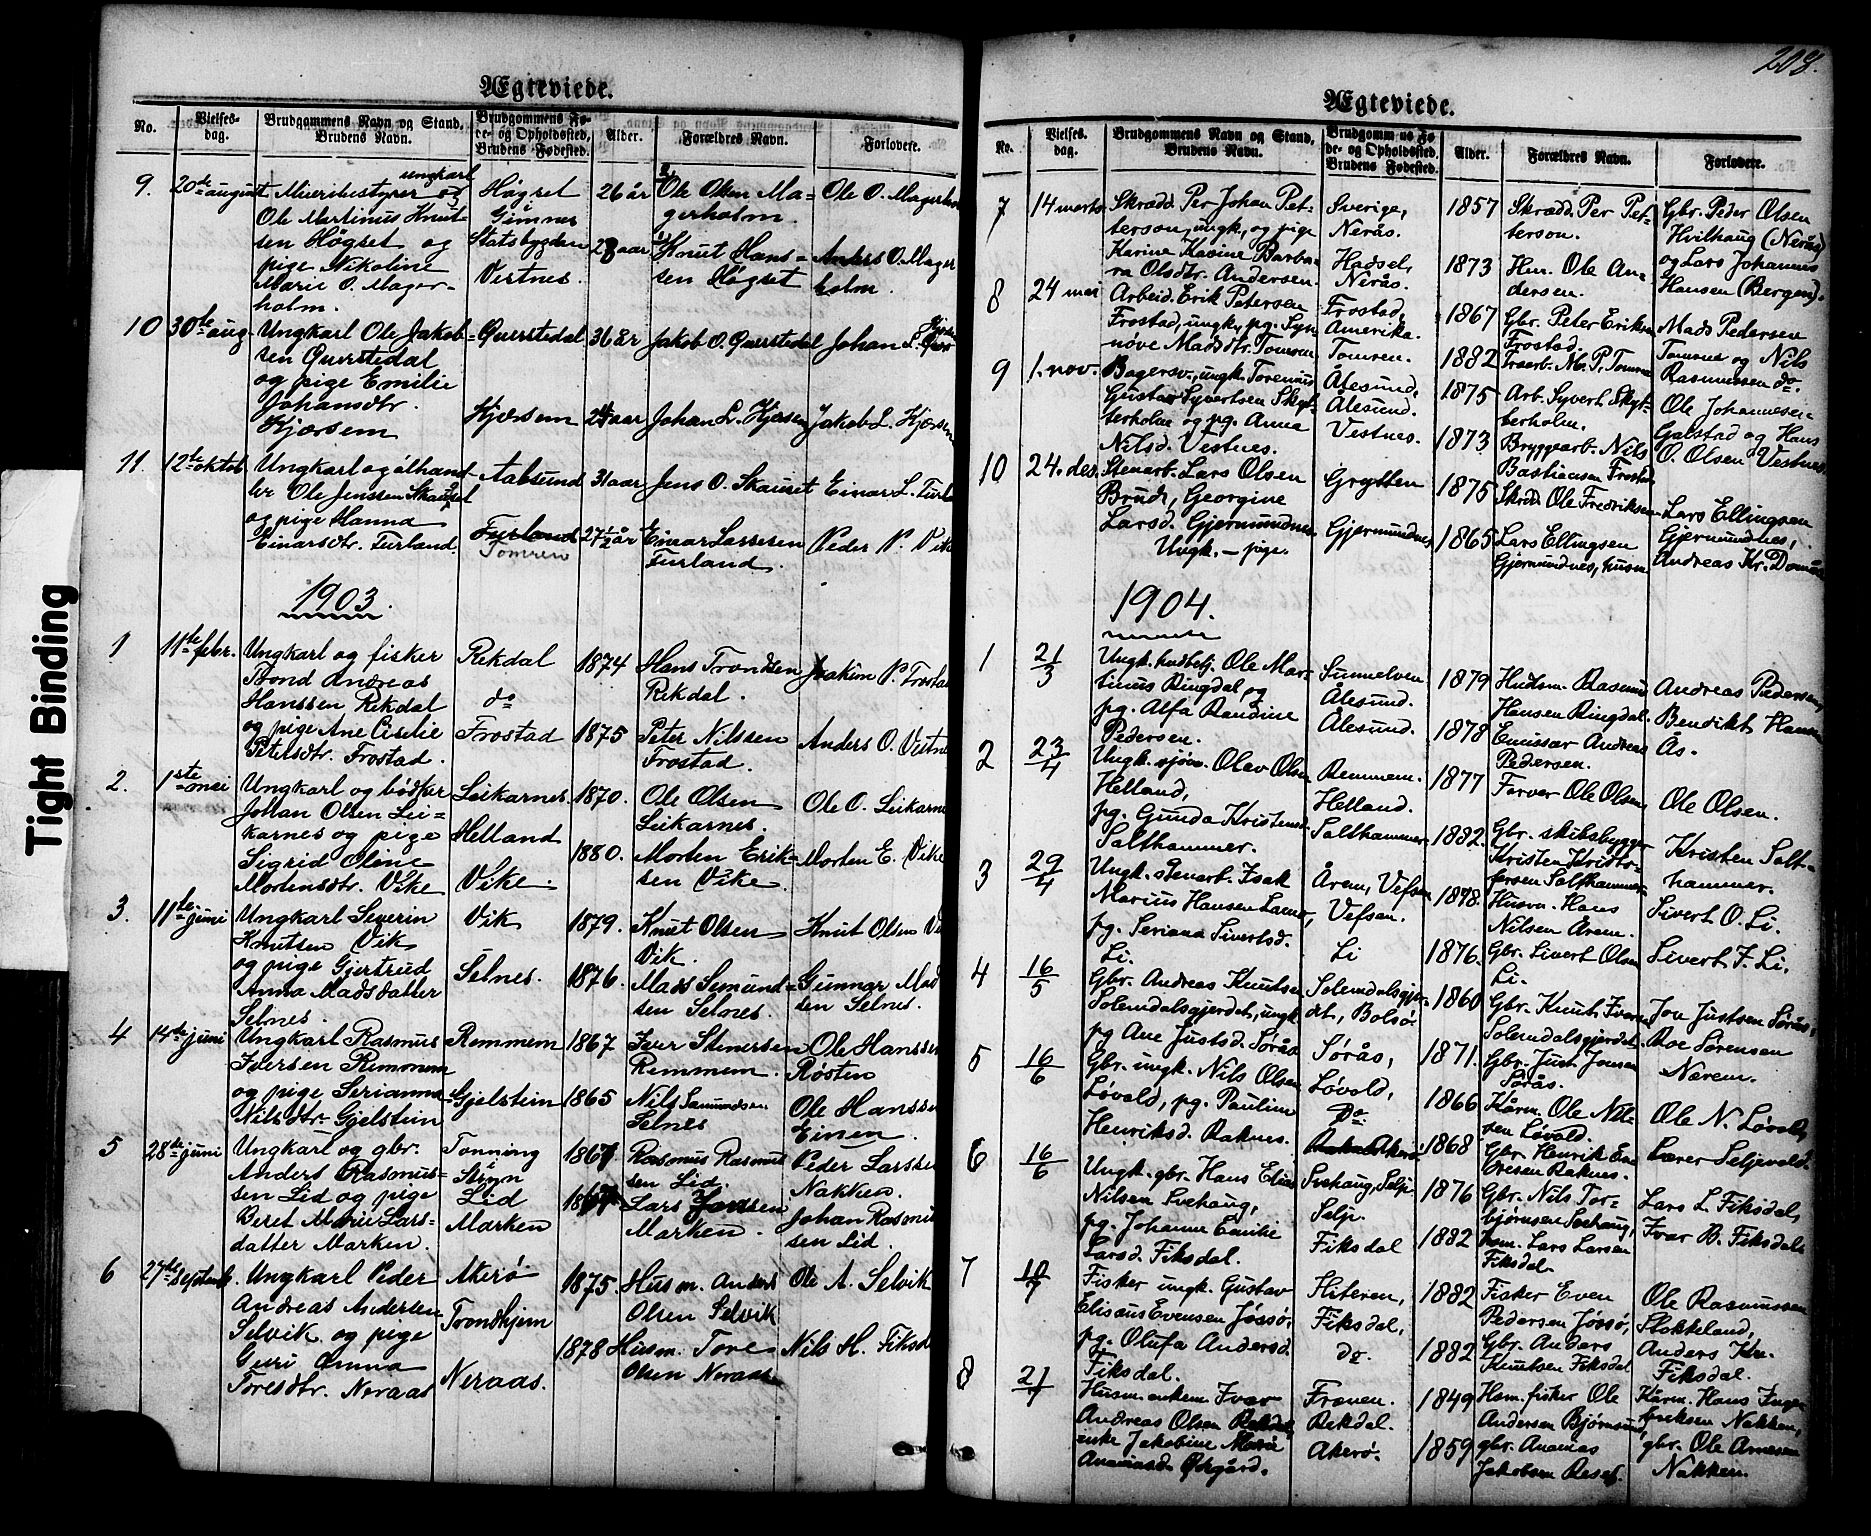 208.
Tight Binding
Ægteviede.
No.
Vielses-
dag.
Brudgommens Navn og Stand,
Brudens Navn.
Brudgommens Fø-
de- og Opholdssted,
Brudens Fødested.
Alder.
Forældres Navn.
Forlovere.
9. 20de august
ungkarl
Meieribestyrer og
Ole Martinus Knut-
sen Høgset og
pige Nikoline
Marie O. Mager-
holm.
Høgset
Gimnes
Statsbygden
Vestnes
26 år
28 aar
Ole Olsen Ma-
gerholm.
Knut Hans-
sen Høgset
Ole O. Magerholm
Anders O. Mager
holm.
10 30te aug
Ungkarl Ole Jakob-
sen Qverstedal
og pige Emilie
Johansdtr.
Kjærsem
Qverstedal
Kjærsem
36 år
24 aar
Jakob O. Qverstedal
Johan L. Kjærsem
Johan L.
Jakob L. Kjærsem
11. 12te oktob
Ungkarl og ølhand-
ler Ole Jenssen Skauset
og pige Hanna
Einarsdtr. Furland.
Aalesund
Furland
Tomren
31 aar
27 1/2 år
Jens O. Skauset
Einar Larssen
Furland.
Einar L. Furland
Peder P. Vik
1903.
1 11te febr.
Ungkarl og fisker
Trond Andreas
Hanssen Rekdal
og pige Ane Cicilie
Petersdtr. Frostad.
Rekdal
do
Frostad
1874
1875
Hans Trondsen
Rekdal.
Peter Nilssen
Frostad.
Joakim P. Frostad
Anders O. Vestnes
2. 1ste mei
Ungkarl og bødker
Johan Olsen Lei-
karnes og pige
Sigrid Oline
Mortensdtr. Vike
Leikarnes.
Helland
Vike.
1870.
1880.
Ole Olsen
Leikarnes.
Morten Erik-
sen Vike.
Ole O. Leikarnes
Morten E. Vike
3. 11te juni
Ungkarl Severin
Knutsen Vik
og pige Gjertrud
Anna Madsdatter
Selnes.
Vik
Selnes.
1879.
1876.
Knut Olsen
Vik.
Mads Semund-
sen Selnes.
Knut Olsen Vik
Gunnar Mad
sen Selnes.
4 14de juni
Ungkarl Rasmus
Iversen Remmem
og pige Serianna
Nilsdtr. Gjelstein
Remmem
Gjelstein
1867
1865
Iver Stenersen
Remmem.
Nils Samundsen
Selnes
Ole Hanssen
Røsten
Ole Hanssen
Einen.
5 28de juni
Ungkarl og gbr.
Anders Rasmus-
sen Lid og pige
Beret Marie Lars-
datter Marken.
Tonning
i
Stryn
Lid
Marken
1867
1867
Rasmus Rasmus
sen Lid.
Lars Jonssen
Marken.
Peder Larssen
Nakken.
Johan Rasmus
sen Lid.
6 27de septemb.
Ungkarl Peder
Andreas Andersen
Selvik og pige
Guri Anna
Toresdtr. Neraas
Akerø
Trondhjem
Neraas.
1875.
1878
Husm. Anders
Olsen Selvik
Husm. Tore
Olsen Neraas
Ole A. Selvik
Nils H. Fiksdal
Ægteviede.
Nr.
Vielses-
dag.
Brudgommens Navn og Stand,
Brudens Navn.
Brudgommens Fø-
de- og Opholdssted,
Brudens Fødested.
Alder.
Forældres Navn.
Forlovere.
7 14 marts
Skrædd. Per Johan Pet-
terson, ungk., og pige
Karine Kasine Barba-
ra Olsdtr. Andersen.
Sverige,
Nerås.
Hadsel,
Nerås.
1857
1873
Skrædd. Per Pet-
terson.
Hm. Ole An-
dersen.
Gbr. Peder Olsen
Hvilhaug (Nerås)
og Lars Johannes
Hansen (Bergen).
8 24 mei
Arbeid. Erik Petersen
Frostad, ungk., pg. Syn-
nøve Madsdtr. Tomren.
Frostad,
Amerika.
Tomren.
1867
1882
Gbr. Peter Eriksen
Frostad.
M. P. Tomren
Mads Pedersen
Tomren og Nils
Rasmussen do.
9 1. nov.
Bagersv., ungk. Torenius
Gustav Syvertsen Skyt-
terholm og pg. Anna
Nilsd. Vestnes.
Ålesund,
Ålesund.
Vestnes.
1875
1873
Arb. Syvert Skyt-
terholm.
Bryggearb. Nils
Bastiansen Frostad
Ole Johannesen
Galstad og Hans
O. Olsen Vestnes.
10 24. des.
Stenarb. Lars Olsen
Brude, Georgine
Larsd. Gjermundnes
Ungk. — pige.
Grytten
Gjermundnes
1875
1865
Skrædd. Ole Fredriksen
Lars Ellingsen
Gjermundnes, husm.
Lars Ellingsen
Gjermundnes,
Andreas Kr.
1904.
1 21/3
Ungk. hndbetj. Ole Mar-
tinus Ringdal og
pg. Alfa Randine
Pedersen.
Sunnelven
Ålesund.
Ålesund.
1879
1878
Husm. Rasmus
Hansen Ringdal.
Emissær Andreas
Pedersen.
Andreas Pedersen,
Bendikt Hansen
Ås.
2 23/4
Ungk. sjøm. Olav Olsen
Helland,
pg. Gunda Kristensd.
Salthammer.
Remmem.
Helland.
Salthammer
1877
1882.
Farver Ole Olsen
Gbr. skibsbygger
Kristen Kristo-
fersen Salthammer
Ole Olsen.
Kristen Salt-
hammer.
3 29/4
Ungk. stenarb. Isak
Marius Hansen
pg. Seriana Sivertsd.
Li.
Åren, Vefsen
Vefsen.
Li
1878.
1876.
Husm. Hans
Nilsen Åren.
Gbr. Sivert Olsen
Li.
Sivert O. Li.
Sivert J. Li.
4 16/5
Gbr. Andreas Knutsen
Solemdalsgjerdet, ungk
pg Ane Justsd. Sørås
Solemdalsgjer-
det, Bolsø.
Sørås,
1860
1871.
Gbr. Knut Ivarsen
Solemdalsgjerdet.
Gbr. Just Jonsen
Sørås.
Jon Justsen Sørås,
Roe Sørensen
Nerem.
5 16/6
Gbr. ungk. Nils Olsen
Løvold, pg. Pauline
Henriksd. Raknes.
Løvold,
Do.
1866
1868
Kårm. Ole Nil-
sen Løvold.
Gbr. Henrik
Raknes.
Ole N. Løvold,
Lærer Seljevold.
6 16/6
Ungk. gbr. Hans Elias
Nilsen Svehaug,
pg. Johanne Emilie
Larsd. Fiksdal.
Svehaug, Selje
Selje.
Fiksdal
1876
1882
Gbr. Nils Tor-
bjørnsen Svehaug,
Lars Larsen
Fiksdal
Lars L. Fiksdal,
Ivar B. Fiksdal.
7 10/7
Fisker ungk. Gustav
Elisæus Evensen Jøssø,
pg. Olufa Andersd.
Fiksdal.
Hiteren,
Fiksdal,
do.
1882
1882
Fisker Even
Pedersen Jøssø,
Gbr. Anders
Knutsen Fiksdal
Ole Rasmussen
Stokkeland,
Anders Kn.
Fiksdal.
8 21/7
Husm. enkem. Ivar
Andreas Olsen Rekdal
enke Jakobine Marie
Ananiasd. Økgård.
Frænen.
Rekdal.
Akerø.
1849
1859
Husm. fisker Ole
Andersen Bjørnsund,
gbr. Ananias
Jakobsen Reset.
Kårm. Hans Inge-
briksen Nakken,
gbr. Ole Arnesen
Nakken.